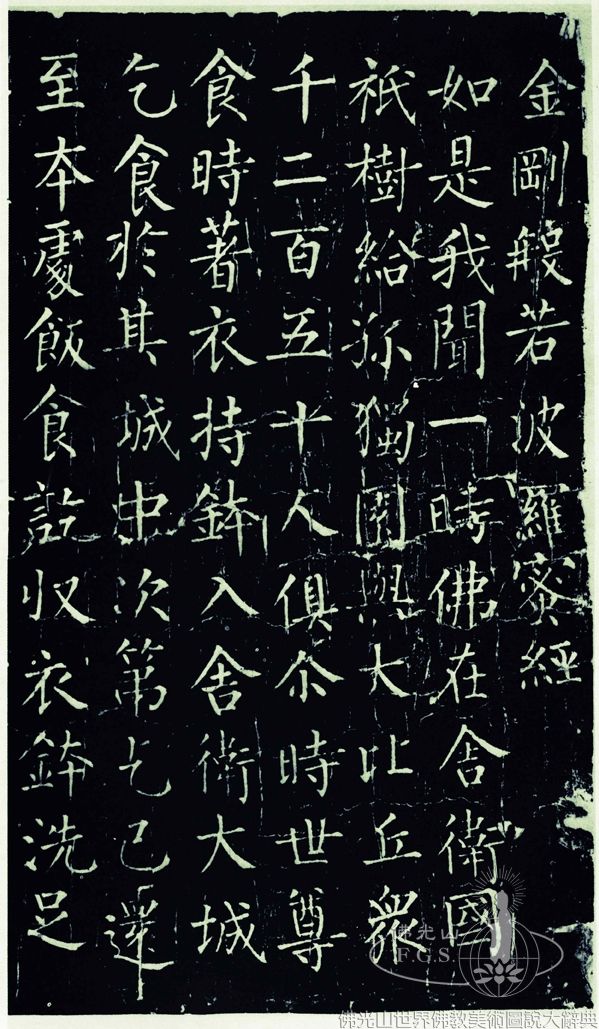 金剛般若波羅蜜經
如是我聞一時佛在舍衛國
祇樹給孤獨園與大比丘眾
千二百五十人俱尒時世尊
食時著衣持鉢入舍衛大城
乞食於其城中次第乞已還
至本處飯食訖收衣鉢洗足
佛光山
F.G.S.
佛光山世界佛教美術圖說大辭典